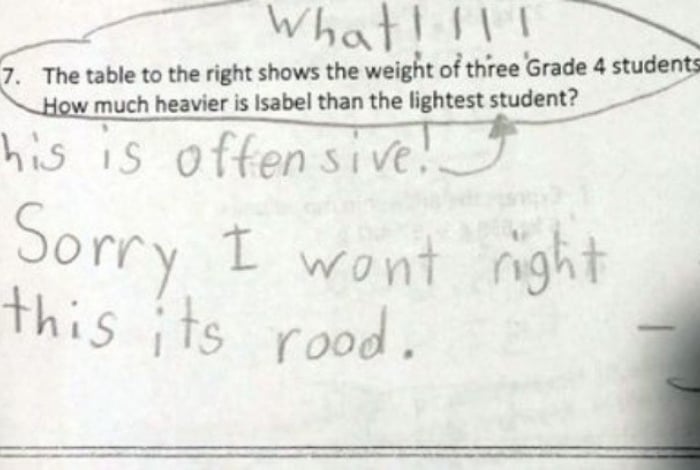 What!!!!!
7. The table to the right shows the weight of three Grade 4 students
How much heavier is Isabel than the lightest student?
his is offensive!
Sorry I wont right
this its rood.